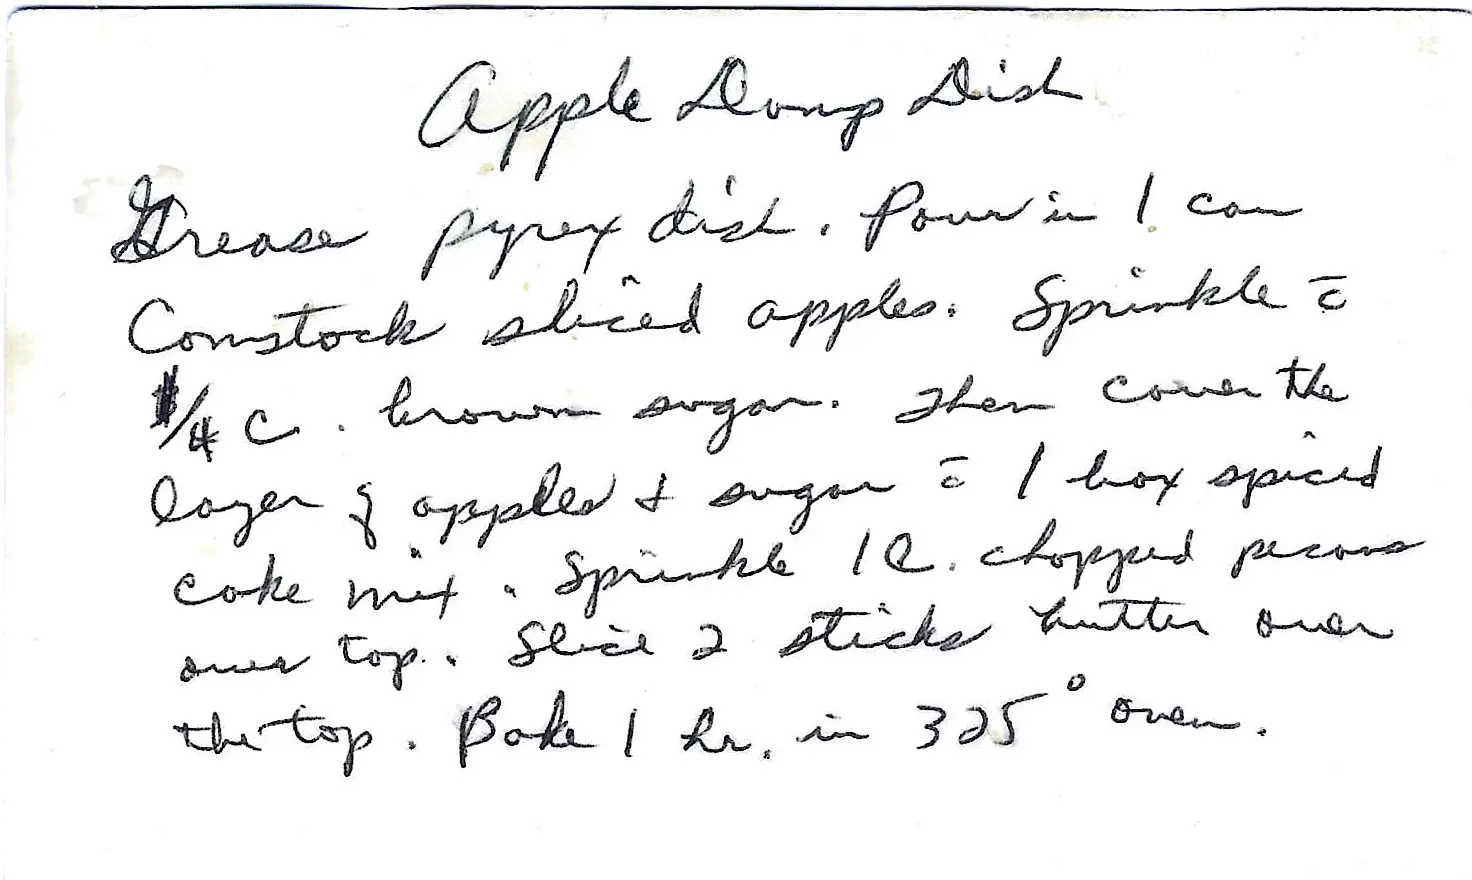 Apple Dump Dish
Grease pyrex dish. Pour in 1 can
Comstock sliced apples. Sprinkle c̄
1/4 C. brown sugar. Then cover the
layer of apples & sugar c̄ 1 box spiced
cake mix. Sprinkle 1 C. chopped pecans
over top. Slice 2 sticks butter over
the top. Bake 1 hr. in 325° oven.